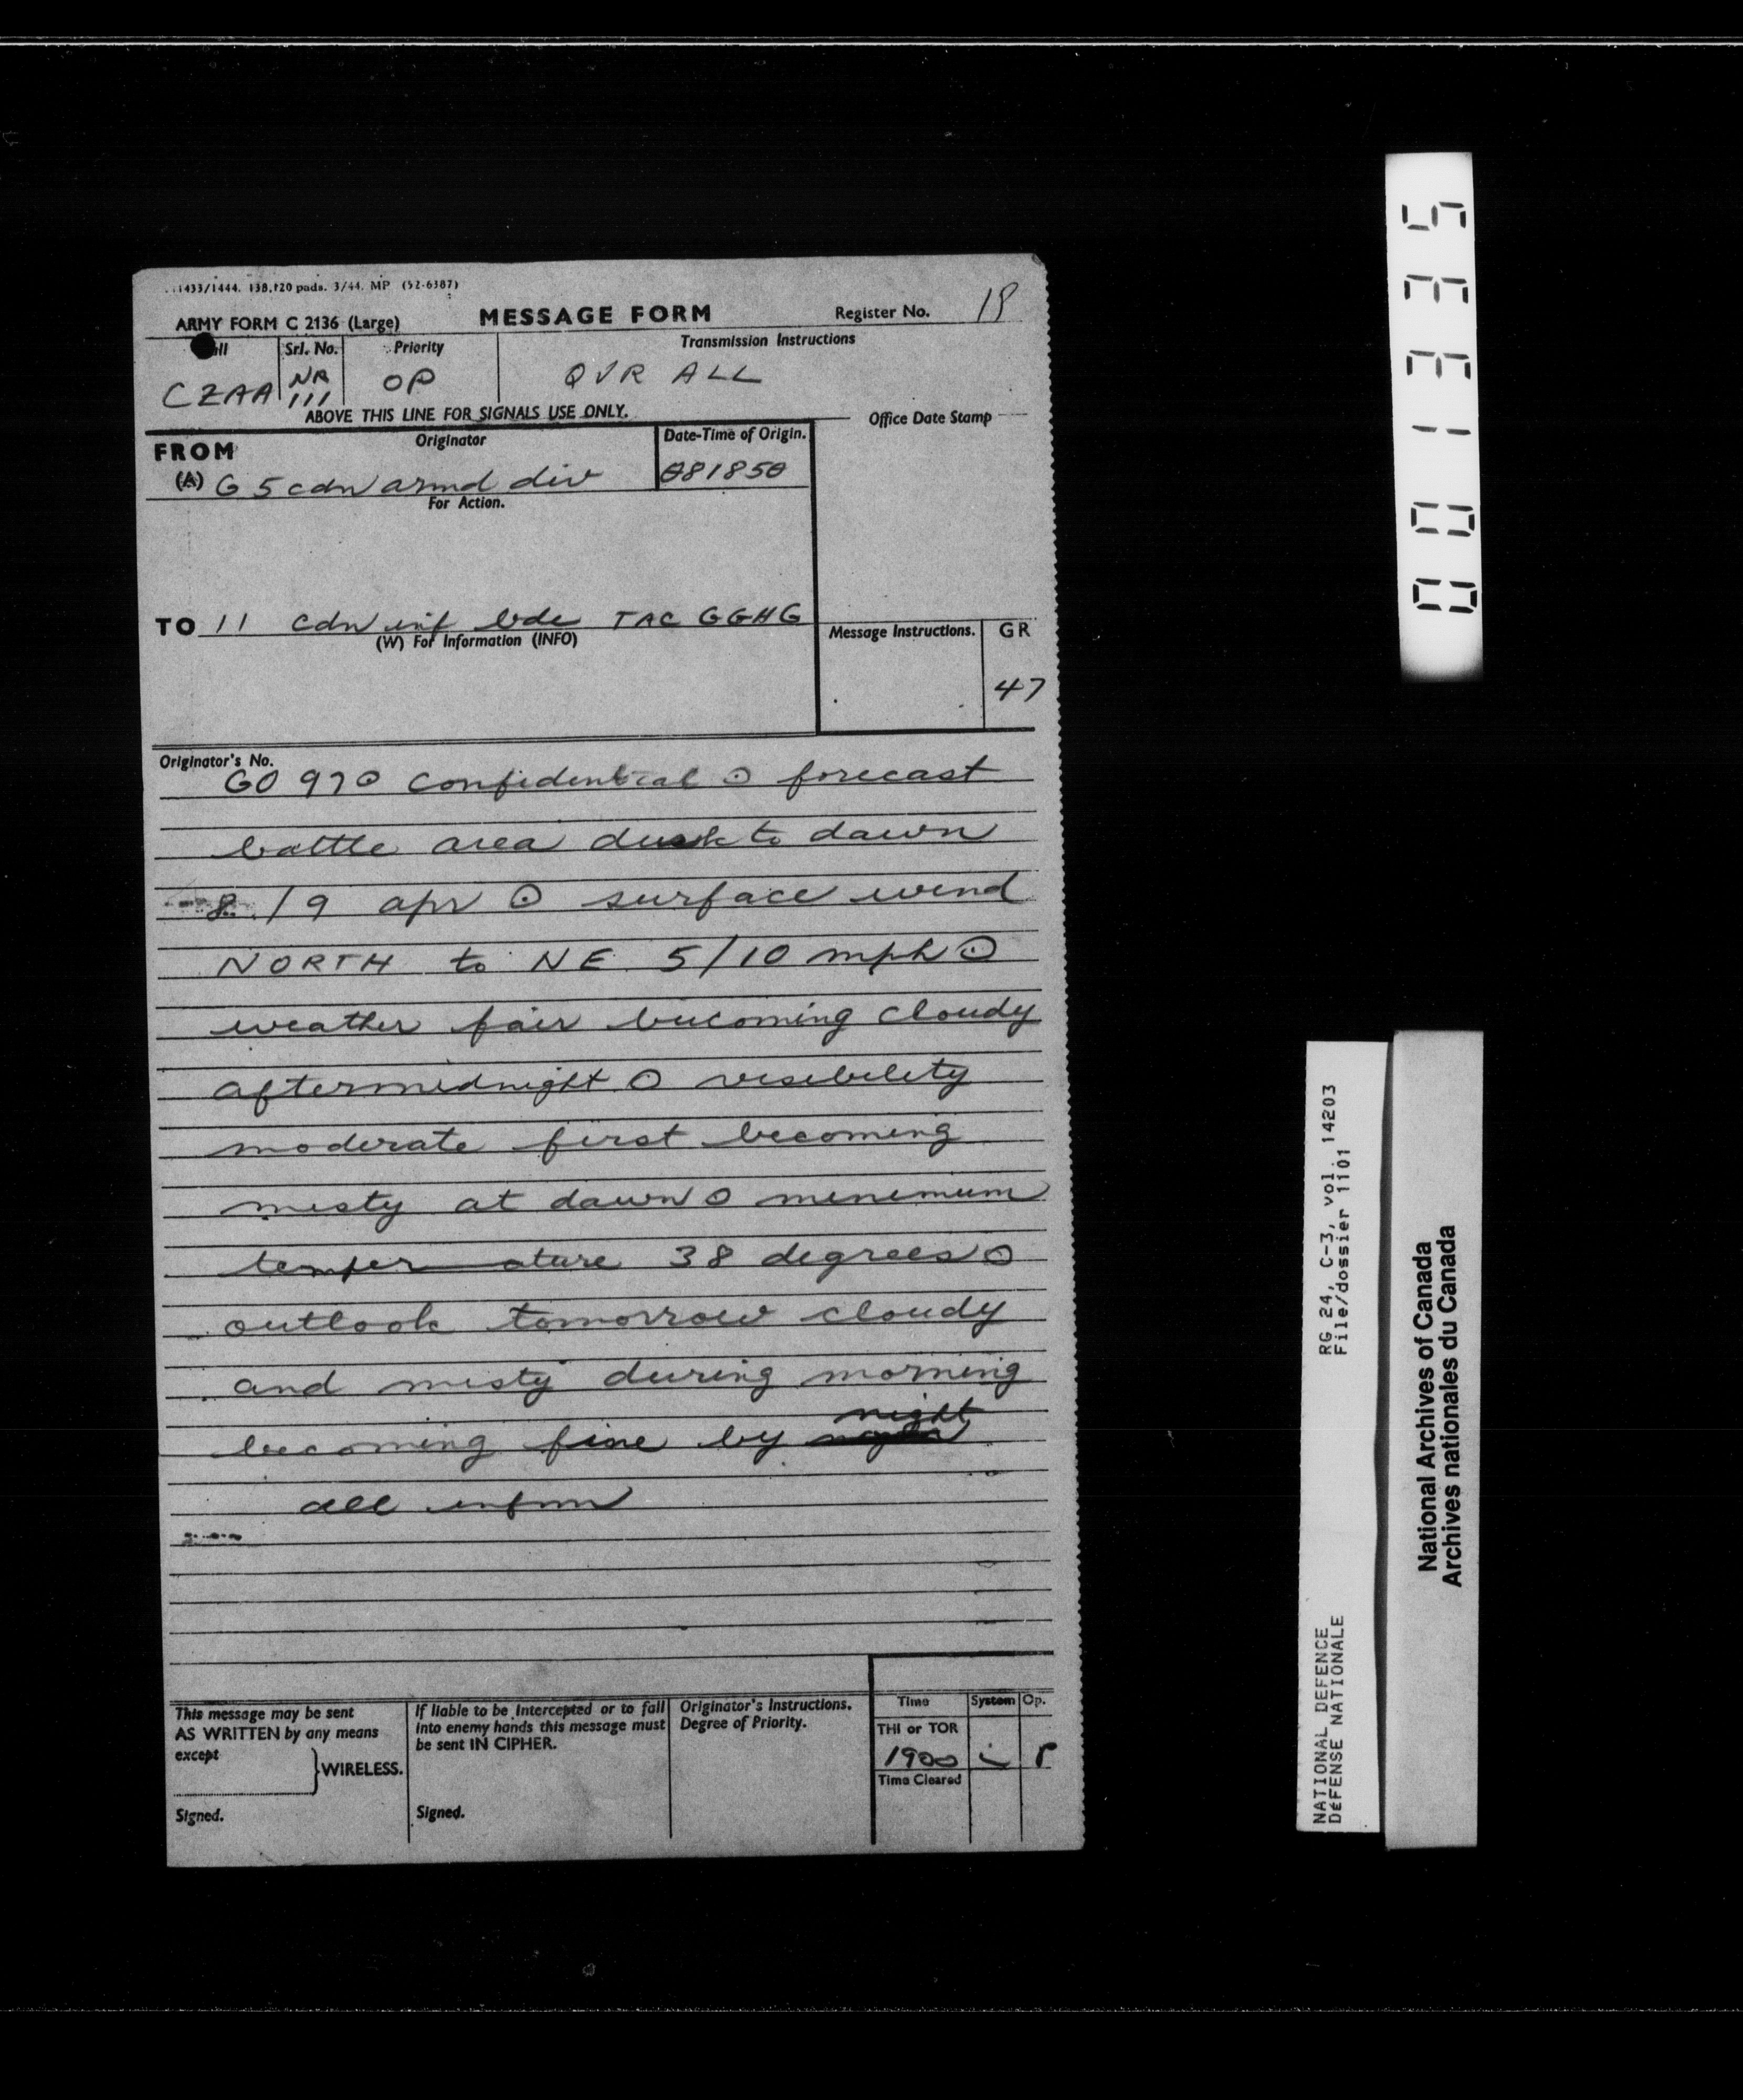 1433/1444. 138,120 pads. 3/44. MP (52-6387)
ARMY FORM C 2136 (Large)
MESSAGE FORM
Register No. 18
Srl. No.
Priority
Transmission Instructions
CZAA
NR 111
OP
QVR ALL
ABOVE THIS LINE FOR SIGNALS USE ONLY.
Office Date Stamp
FROM
Originator
Date-Time of Origin.
(A) G 5 cdn armd div
081850
For Action.
TO 11 cdn inf bde TAC GGHG
(W) For Information (INFO)
Message Instructions.
GR
47
Originator's No.
GO 970 confidential ⊙ forecast
battle area dusk to dawn
8/9 apr ⊙ surface wind
NORTH to NE 5/10 mph ⊙
weather fair becoming cloudy
aftermidnight ⊙ visibility
moderate first becoming
misty at dawn ⊙ minimum
temperature 38 degrees ⊙
outlook tomorrow cloudy
and misty during morning
night
becoming fine by
all infm
This message may be sent
AS WRITTEN by any means
except
WIRELESS.
Signed.
If liable to be intercepted or to fall
into enemy hands this message must
be sent IN CIPHER.
Signed.
Originator's Instructions.
Degree of Priority.
Time
System
Op.
THI or TOR
1900
Time Cleared
001335
RG 24, C-3, vol. 14203
File/dossier 1101
NATIONAL DEFENCE
DÉFENSE NATIONALE
National Archives of Canada
Archives nationales du Canada